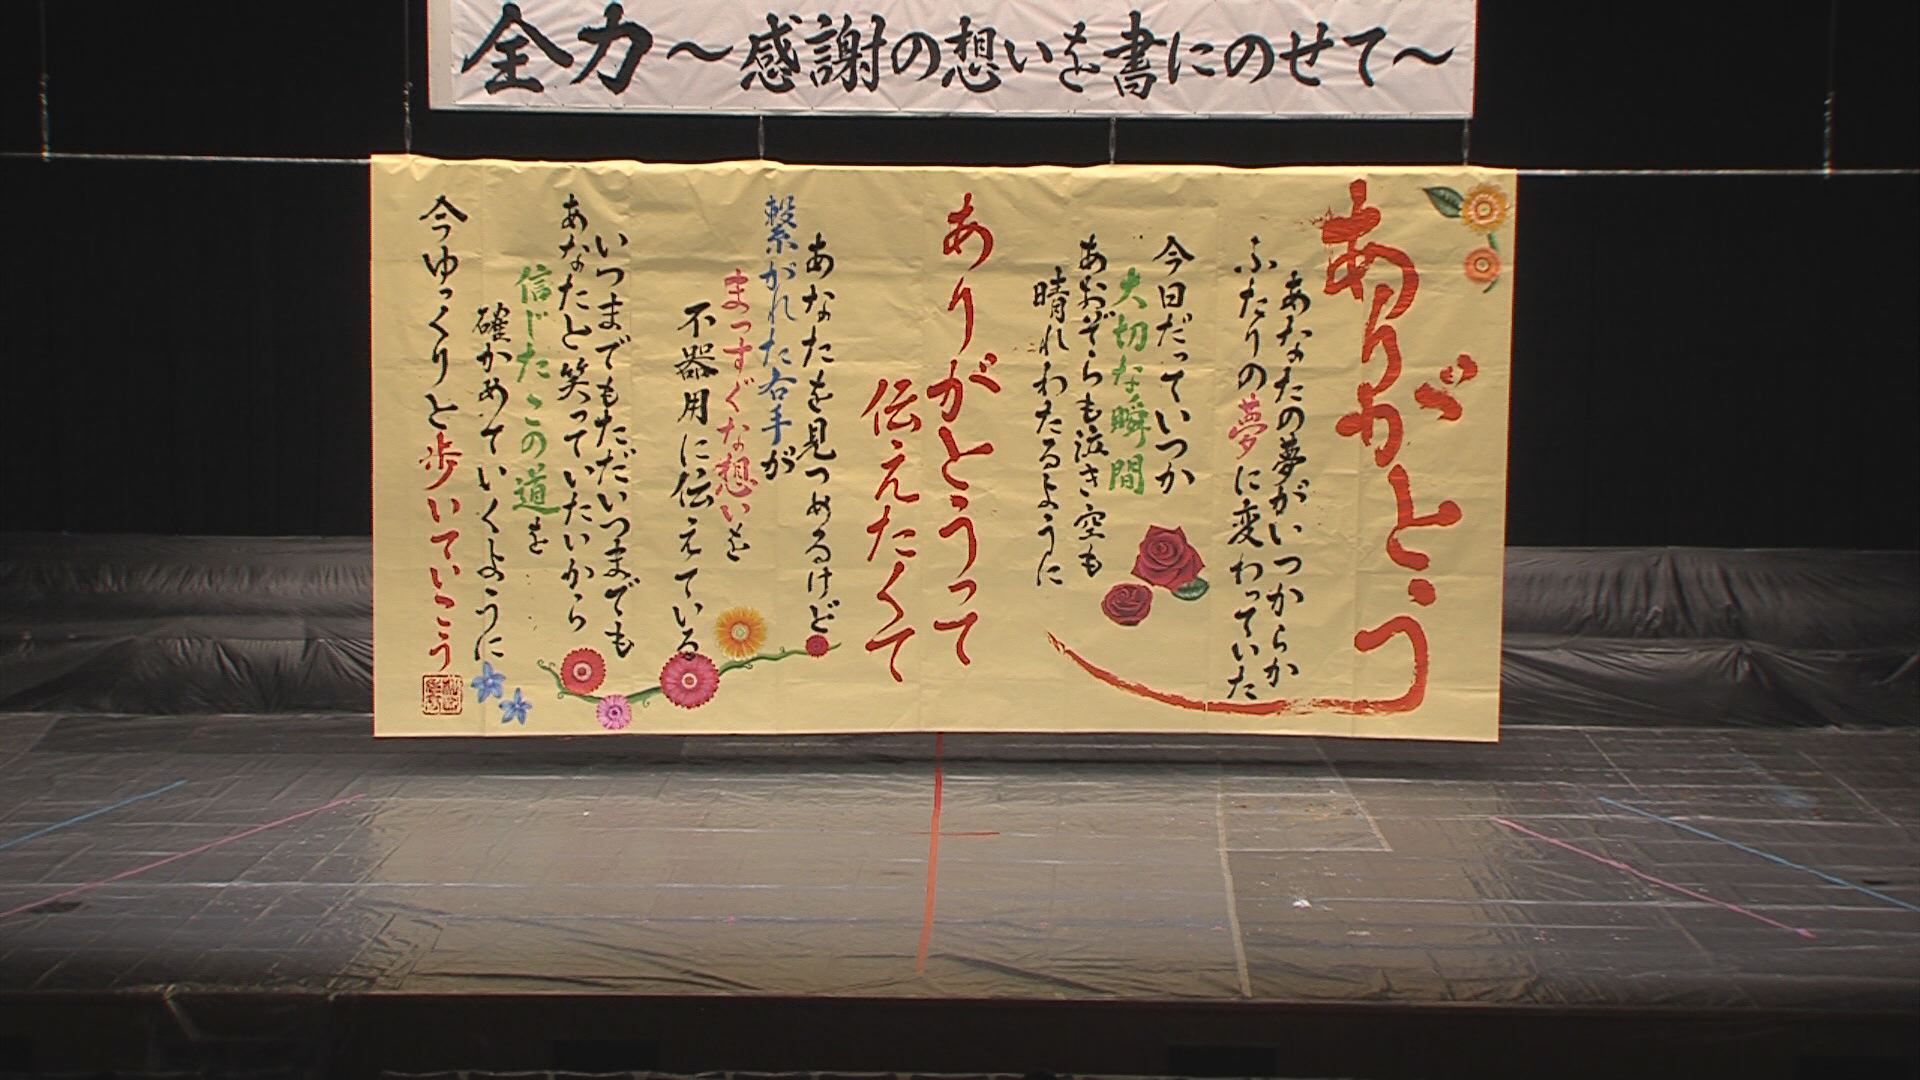 全力～感謝の想いを書にのせて～
ありがとう
あなたの夢がいつからか
ふたりの夢に変わっていた
今日だっていつか
大切な瞬間
あおぞらも泣き空も
晴れわたるように
ありがとうって
伝えたくて
あなたを見つめるけど
繋がれた右手が
まっすぐな想いを
不器用に伝えている
いつまでもただいつまでも
あなたと笑っていたいから
信じたこの道を
確かめていくように
今ゆっくりと歩いていこう